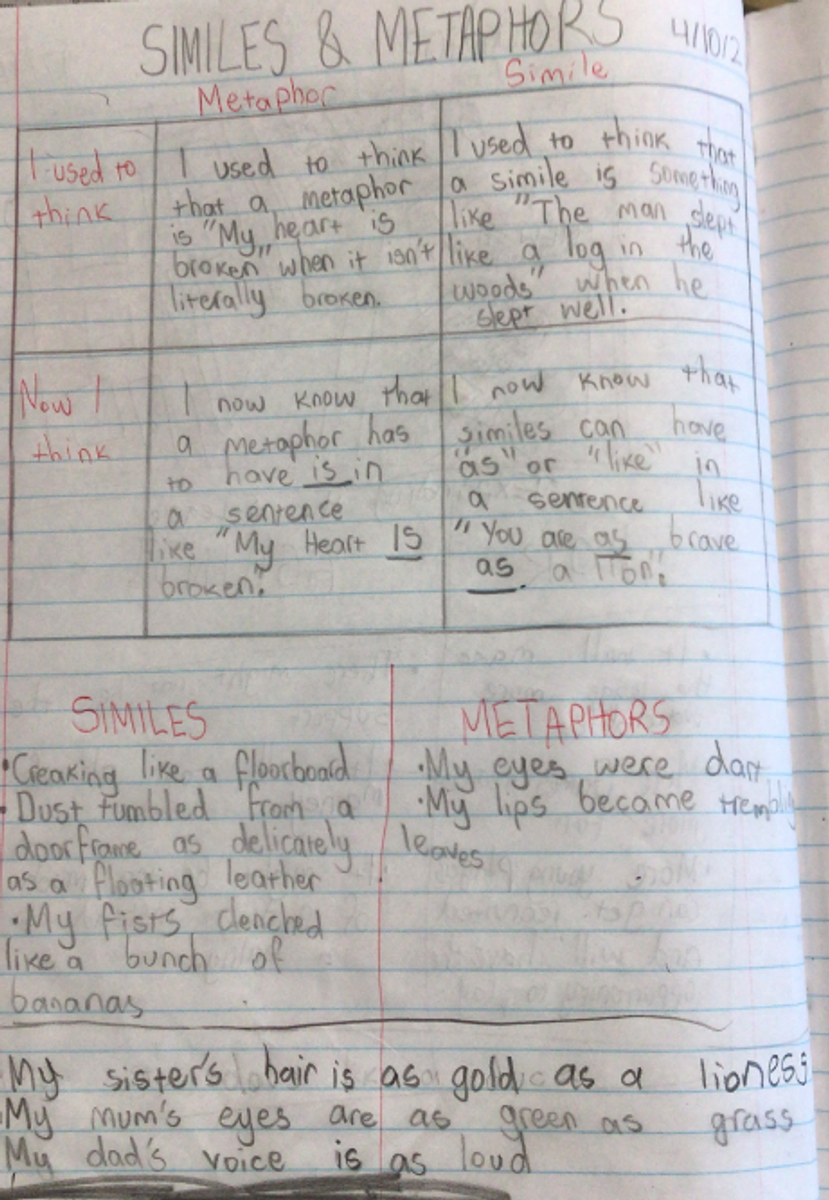 SIMILES & METAPHORS 4/10/2
Metaphor
Simile
I used to
think
I used to think
that a metaphor
is "My heart is
broken" when it isn't
literally broken.
I used to think that
a simile is something
like "The man slept
like a log in the
woods" when he
slept well.
Now I
think
I now know that
a metaphor has
to have is in
a sentence
like "My Heart IS
broken".
I now know that
similes can have
"as" or "like" in
a sentence like
"You are as brave
as a lion".
SIMILES
• Creaking like a floorboard
• Dust tumbled from a
doorframe as delicately
as a floating leather
• My fists clenched
like a bunch of
bananas
METAPHORS
• My eyes were
• My lips became
leaves
My sister's hair is as gold as a lioness
My mum's eyes are as green as grass
My dad's voice is as loud